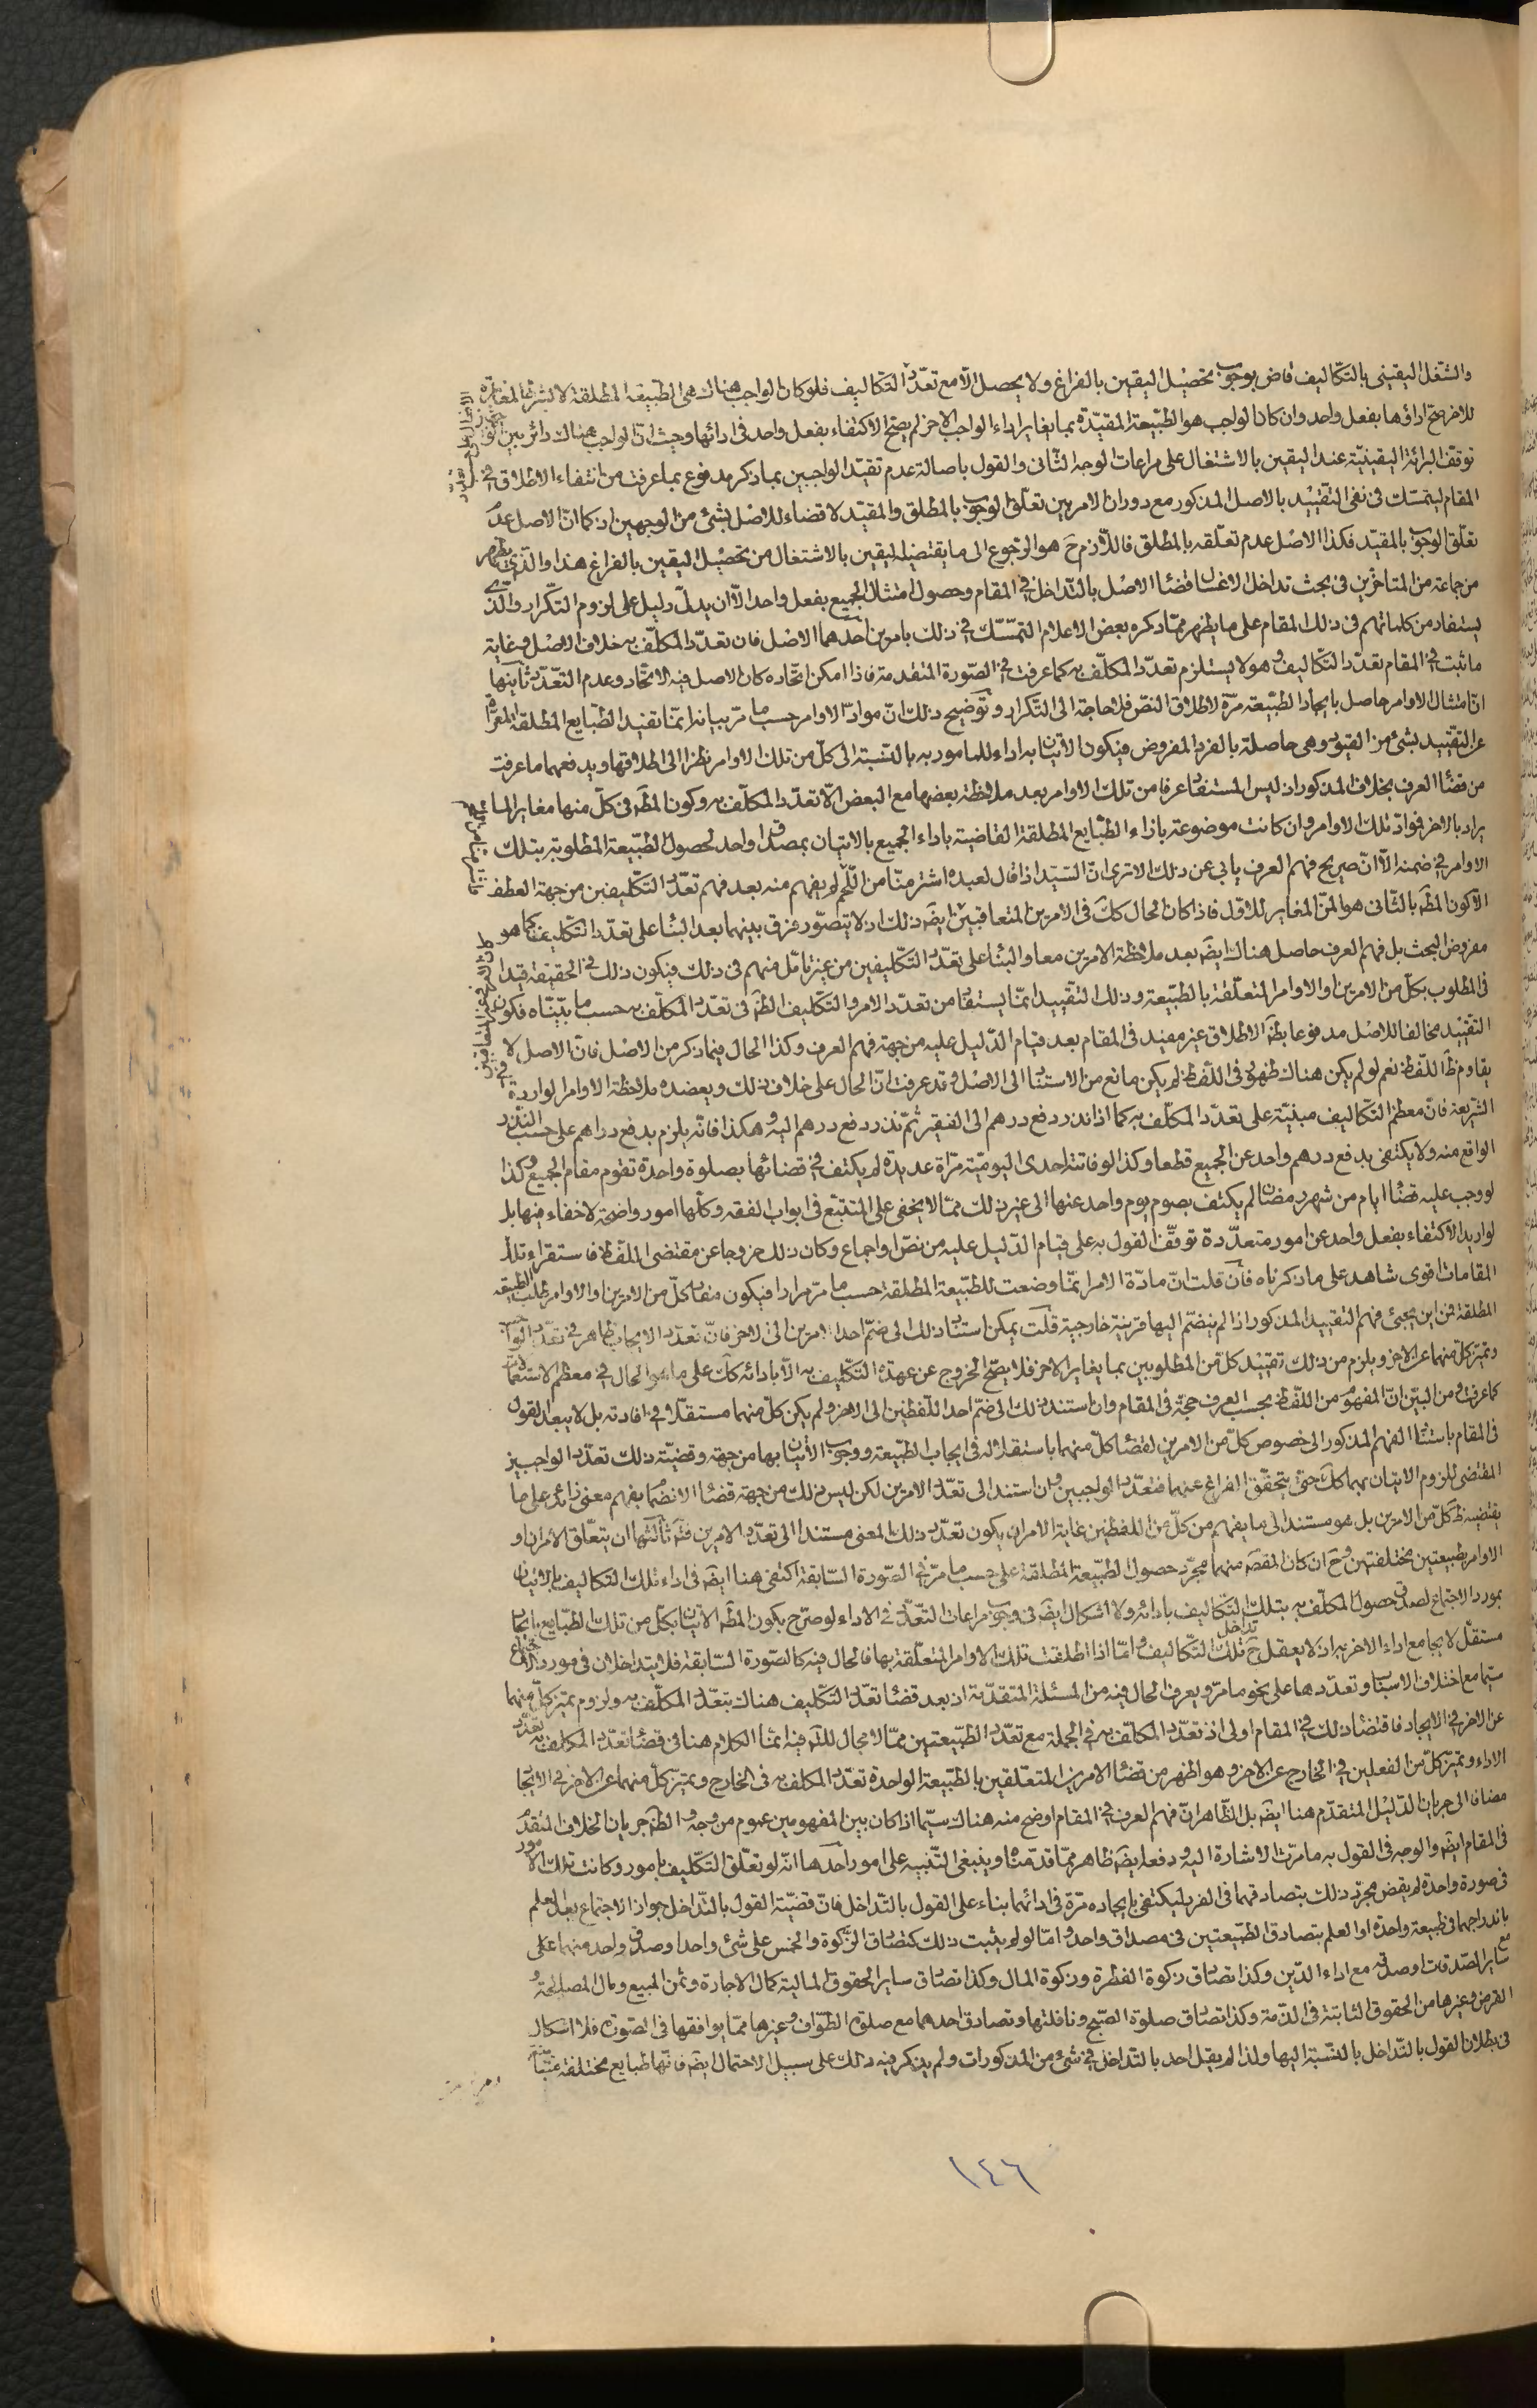 والشغل اليقيني بالتكاليف قاض بوجوب تحصيل اليقين بالفراغ ولا يحصل الا مع تعدد التكاليف فلو كان الواجب هناك هي الطبيعة المطلقة لا بشرط المغايرة
للاخر صح اداؤها بفعل واحد وان كان الواجب هو الطبيعة المقيدة بما يغاير اداء الواجب الاخر لم يصح الاكتفاء بفعل واحد في ادائها وحيث ان الواجب هناك دائر بين
توقف البرائة اليقينية عند اليقين بالاشتغال على مراعات الوجه الثاني والقول باصالة عدم تقيد الواجبين بما ذكر مدفوع بما عرفت من انتفاء الاطلاق في
المقام ليتمسك في نفى التقييد بالاصل المذكور مع دوران الامر بين تعلق الوجوب بالمطلق والمقيد لا قضاء للاصل بشئ من الوجهين اذ كما ان الاصل عدم
تعلق الوجوب بالمقيد فكذا الاصل عدم تعلقه بالمطلق فاللازم ح هو الرجوع الى ما يقتضيه اليقين بالاشتغال من تحصيل اليقين بالفراغ هذا والذي يظهر
من جماعة من المتاخرين في بحث تداخل الاغسال قضاء الاصل بالتداخل في المقام وحصول امتثال الجميع بفعل واحد الا ان يدل دليل على لزوم التكرار والذي
يستفاد من كلماتهم في ذلك المقام على ما يظهر مما ذكره بعض الاعلام التمسك في ذلك بامرين احدهما الاصل فان تعدد المكلف به خلاف الاصل وغاية
ما ثبت في المقام تعدد التكاليف وهو لا يستلزم تعدد المكلف به كما عرفت في الصورة المتقدمة فاذا امكن اتحاده كان الاصل فيه الاتحاد وعدم التعدد ثانيها
ان امتثال الاوامر حاصل بايجاد الطبيعة مرة لاطلاق النص فلا حاجة الى التكرار وتوضيح ذلك ان مواد الاوامر حسب ما مر بيانه انما تفيد الطبايع المطلقة المعراة
عن التقييد بشئ من القيود وهي حاصلة بالفرد المفروض فيكون الاتيان به اداء للمامور به بالنسبة الى كل من تلك الاوامر نظرا الى اطلاقها ويدفعهما ما عرفت
من قضاء العرف بخلاف المذكور اذ ليس المستفاد عرفا من تلك الاوامر بعد ملاحظة بعضها مع البعض الا تعدد المكلف به وكون المط في كل منها مغايرا لما
يراد بالاخر فمواد تلك الاوامر وان كانت موضوعة بازاء الطبايع المطلقة القاضية باداء الجميع بالاتيان بمصداق واحد لحصول الطبيعة المطلوبة بتلك
الاوامر في ضمنه الا ان صريح فهم العرف يابى عن ذلك الا ترى ان السيد اذا قال لعبده اشتر منا من اللحم لم يفهم منه بعد فهم تعدد التكليفين من جهة العطف
الا كون المط بالثاني هو المن المغاير للاول فاذا كان الحال كك في الامرين المتعاقبين ايضا ذلك اذ لا يتصور فرق بينهما بعد البناء على تعدد التكليف كما هو
مفروض البحث بل فهم العرف حاصل هناك ايض بعد ملاحظة الامرين معا والبناء على تعدد التكليفين من غير تامل منهم في ذلك فيكون ذلك في الحقيقة قيدا
في المطلوب بكل من الامرين او الاوامر المتعلقة بالطبيعة وذلك التقييد انما يستفاد من تعدد الامر والتكليف الظ في تعدد المكلف به حسب ما بيناه فكون
التقييد مخالفا للاصل مدفوعا بظ الاطلاق غير مفيد في المقام بعد قيام الدليل عليه من جهة فهم العرف وكذا الحال فيما ذكر من الاصل فان الاصل لا
يقاوم ظ اللفظ نعم لو لم يكن هناك ظهور في اللفظ لم يكن مانع من الاستناد الى الاصل وقد عرفت ان الحال على خلاف ذلك ويعضده ملاحظة الاوامر الواردة في
الشريعة فان معظم التكاليف مبنية على تعدد المكلف به كما اذا نذر دفع درهم الى الفقير ثم نذر دفع درهم اليه وهكذا فانه يلزم بدفع دراهم على حسب النذر
الواقع منه ولا يكتفى بدفع درهم واحد عن الجميع قطعا وكذا لو فاتته احدى اليومية مرات عديدة لم يكتف في قضائها بصلوة واحدة تقوم مقام الجميع وكذا
لو وجب عليه قضاء ايام من شهر رمضان لم يكتف بصوم يوم واحد عنها الى غير ذلك مما لا يخفى على المتتبع في ابواب الفقه وكلها امور واضحة لا خفاء فيها بل
لو اريد الاكتفاء بفعل واحد عن امور متعددة توقف القول به على قيام الدليل عليه من نص او اجماع وكان ذلك خروجا عن مقتضى اللفظ فاستقراء تلك
المقامات اقوى شاهد على ما ذكرناه فان قلت ان مادة الامر انما وضعت للطبيعة المطلقة حسب ما مر مرارا فيكون مفاد كل من الامرين او الاوامر طلب الطبيعة
المطلقة فمن اين يجئ فهم التقييد المذكور اذا لم ينضم اليها قرينة خارجية قلت يمكن استناد ذلك الى ضم احد الامرين الى الاخر فان تعدد الايجاب ظاهر في تعدد الواجب
وتميز كل منهما عن الاخر ويلزم من ذلك تقييد كل من المطلوبين بما يغاير الاخر فلا يصح الخروج عن عهدة التكليف به الا بادائه كك على ما هو الحال في معظم الاستعمالات
كما عرفت ومن البين ان المفهوم من اللفظ بحسب العرف حجة في المقام وان استند ذلك الى ضم احد اللفظين الى الاخر ولم يكن كل منهما مستقلا في افادته بل لا يبعد القول
في المقام باستناد الفهم المذكور الى خصوص كل من الامرين لقضاء كل منهما باستقلاله في ايجاب الطبيعة ووجوب الاتيان بها من جهته وقضية ذلك تعدد الواجبين
المقتضى للزوم الاتيان بهما كك حتى يتحقق الفراغ عنهما فتعدد الواجبين وان استند الى تعدد الامرين لكن ليس ذلك من جهة قضاء الانضمام بفهم معنى زائد على ما
يقتضيه ظ كل من الامرين بل هو مستند الى ما يفهم من كل من اللفظين غاية الامر ان يكون تعدد ذلك المعنى مستندا الى تعدد الامرين فت ثالثها ان يتعلق الامران او
الاوامر بطبيعتين مختلفتين وح ان كان المقص منهما مجرد حصول الطبيعة المطلقة على حسب ما مر في الصورة السابقة اكتفى هنا ايض في اداء تلك التكاليف بالاتيان
بمورد الاجتماع لصدق حصول المكلف به بتلك التكاليف بادائه ولا اشكال ايض في وجوب مراعات التعدد في الاداء لو صرح بكون المط الاتيان بكل من تلك الطبايع ايجادا
مستقلا لا يجامع اداء الاخر به اذ لا يعقل ح تداخل تلك التكاليف واما اذا اطلقت تلك الاوامر المتعلقة بها فالحال فيه كالصورة السابقة فلا يتداخلان في مورد الاجتماع
سيما مع اختلاف الاسباب وتعددها على نحو ما مر ويعرف الحال فيه من المسئلة المتقدمة اذ بعد قضاء تعدد التكليف هناك بتعدد المكلف به ولزوم تميز كل منهما
عن الاخر في الايجاد فاقتضاء ذلك في المقام اولى اذ تعدد المكلف به في الجملة مع تعدد الطبيعتين مما لا مجال للت فيه انما الكلام هنا في قضاء تعدد المكلف به تعدد
الاداء وتميز كل من الفعلين في الخارج عن الاخر وهو اظهر من قضاء الامرين المتعلقين بالطبيعة الواحدة تعدد المكلف به في الخارج وتميز كل منهما عن الاخر في الايجاد
مضافا الى جريان الدليل المتقدم هنا ايض بل الظاهر ان فهم العرف في المقام اوضح منه هناك سيما اذا كان بين المفهومين عموم من وجه والظ جريان الخلاف المتقدم
في المقام ايض والوجه في القول به ما مرت الاشارة اليه ودفعه ايض ظاهر مما قدمناه وينبغي التنبيه على امور احدها انه لو تعلق التكليف بامور وكانت تلك الامور
في صورة واحدة لم يقض مجرد ذلك بتصادقهما في الفرد ليكتفى بايجاده مرة في ادائهما بناء على القول بالتداخل فان قضية القول بالتداخل جواز الاجتماع بعد العلم
باندراجهما في طبيعة واحدة او العلم بتصادق الطبيعتين في مصداق واحد واما لو لم يثبت ذلك كتصادق الزكوة والخمس على شئ واحد وصدق واحد منهما على
ساير الصدقات او صدقه مع اداء الدين وكذا تصادق زكوة الفطرة وزكوة المال وكذا تصادق ساير الحقوق المالية كمال الاجارة وثمن المبيع ومال المصالحة و
القرض وغيرها من الحقوق الثابتة في الذمة وكذا تصادق صلوة الصبح ونافلتها وتصادق احدهما مع صلوة الطواف وغيرها مما يوافقها في الصورة فلا اشكال
في بطلان القول بالتداخل بالنسبة اليها ولذا لم يقل احد بالتداخل في شئ من المذكورات ولم يذكر فيه ذلك على سبيل الاحتمال ايض فانها طبايع مختلفة
١٤٦